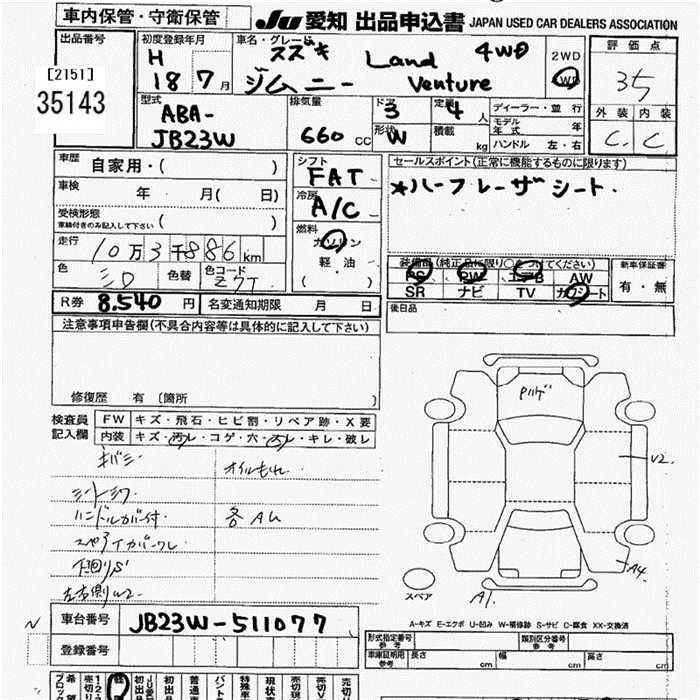 車内保管・守衛保管
JU 愛知 出品申込書 JAPAN USED CAR DEALERS ASSOCIATION
出品番号
[2151]
35143
初度登録年月
H
18 7月
車名・グレード
スズキ Land 4WD
ジムニー Venture
2WD
4WD
評価点
3.5
外装 内装
C C
型式
ABA-
JB23W
排気量
660 CC
ドア 3
形状 W
定員 4 人
積載 kg
ディーラー・並行
モデル年式 年
ハンドル 左・右
車歴 自家用・( )
車検 年 月( 日)
受検形態
車検付きのみ記入して下さい ( )
走行 10万3千886km
色 色替 色コード
Z7T
シフト
FAT
冷房
A/C
燃料
ガソリン
軽油
( )
セールスポイント(正常に機能するものに限ります)
*ハーフレーザシート.
装備品(純正品に限り○をつけてください)
PS PW エアB AW
SR ナビ TV カワシート
新車保証書
有・無
後日品
R券 8,540円 名変通知期限 月 日
注意事項申告欄(不具合内容等は具体的に記入して下さい)
修復歴 有 [箇所 ]
検査員記入欄
FW キズ・飛石・ヒビ割・リペア跡・X要
内装 キズ・汚レ・コゲ・穴・スレ・キレ・破レ
オイルもれ
シートシワ
ハンドルカバー付 各AU
スペアタイヤカバーワレ
下回りS
左右側W2
W2
A4
A1
スペア
A-キズ E-エクボ U-凹み W-補修跡 S-サビ C-腐食 XX-交換済
N
車台番号 JB23W-511077
登録番号
形式指定番号
参考
類別区分番号
参考
車庫証明用
参考
長さ cm 幅 cm 高さ cm